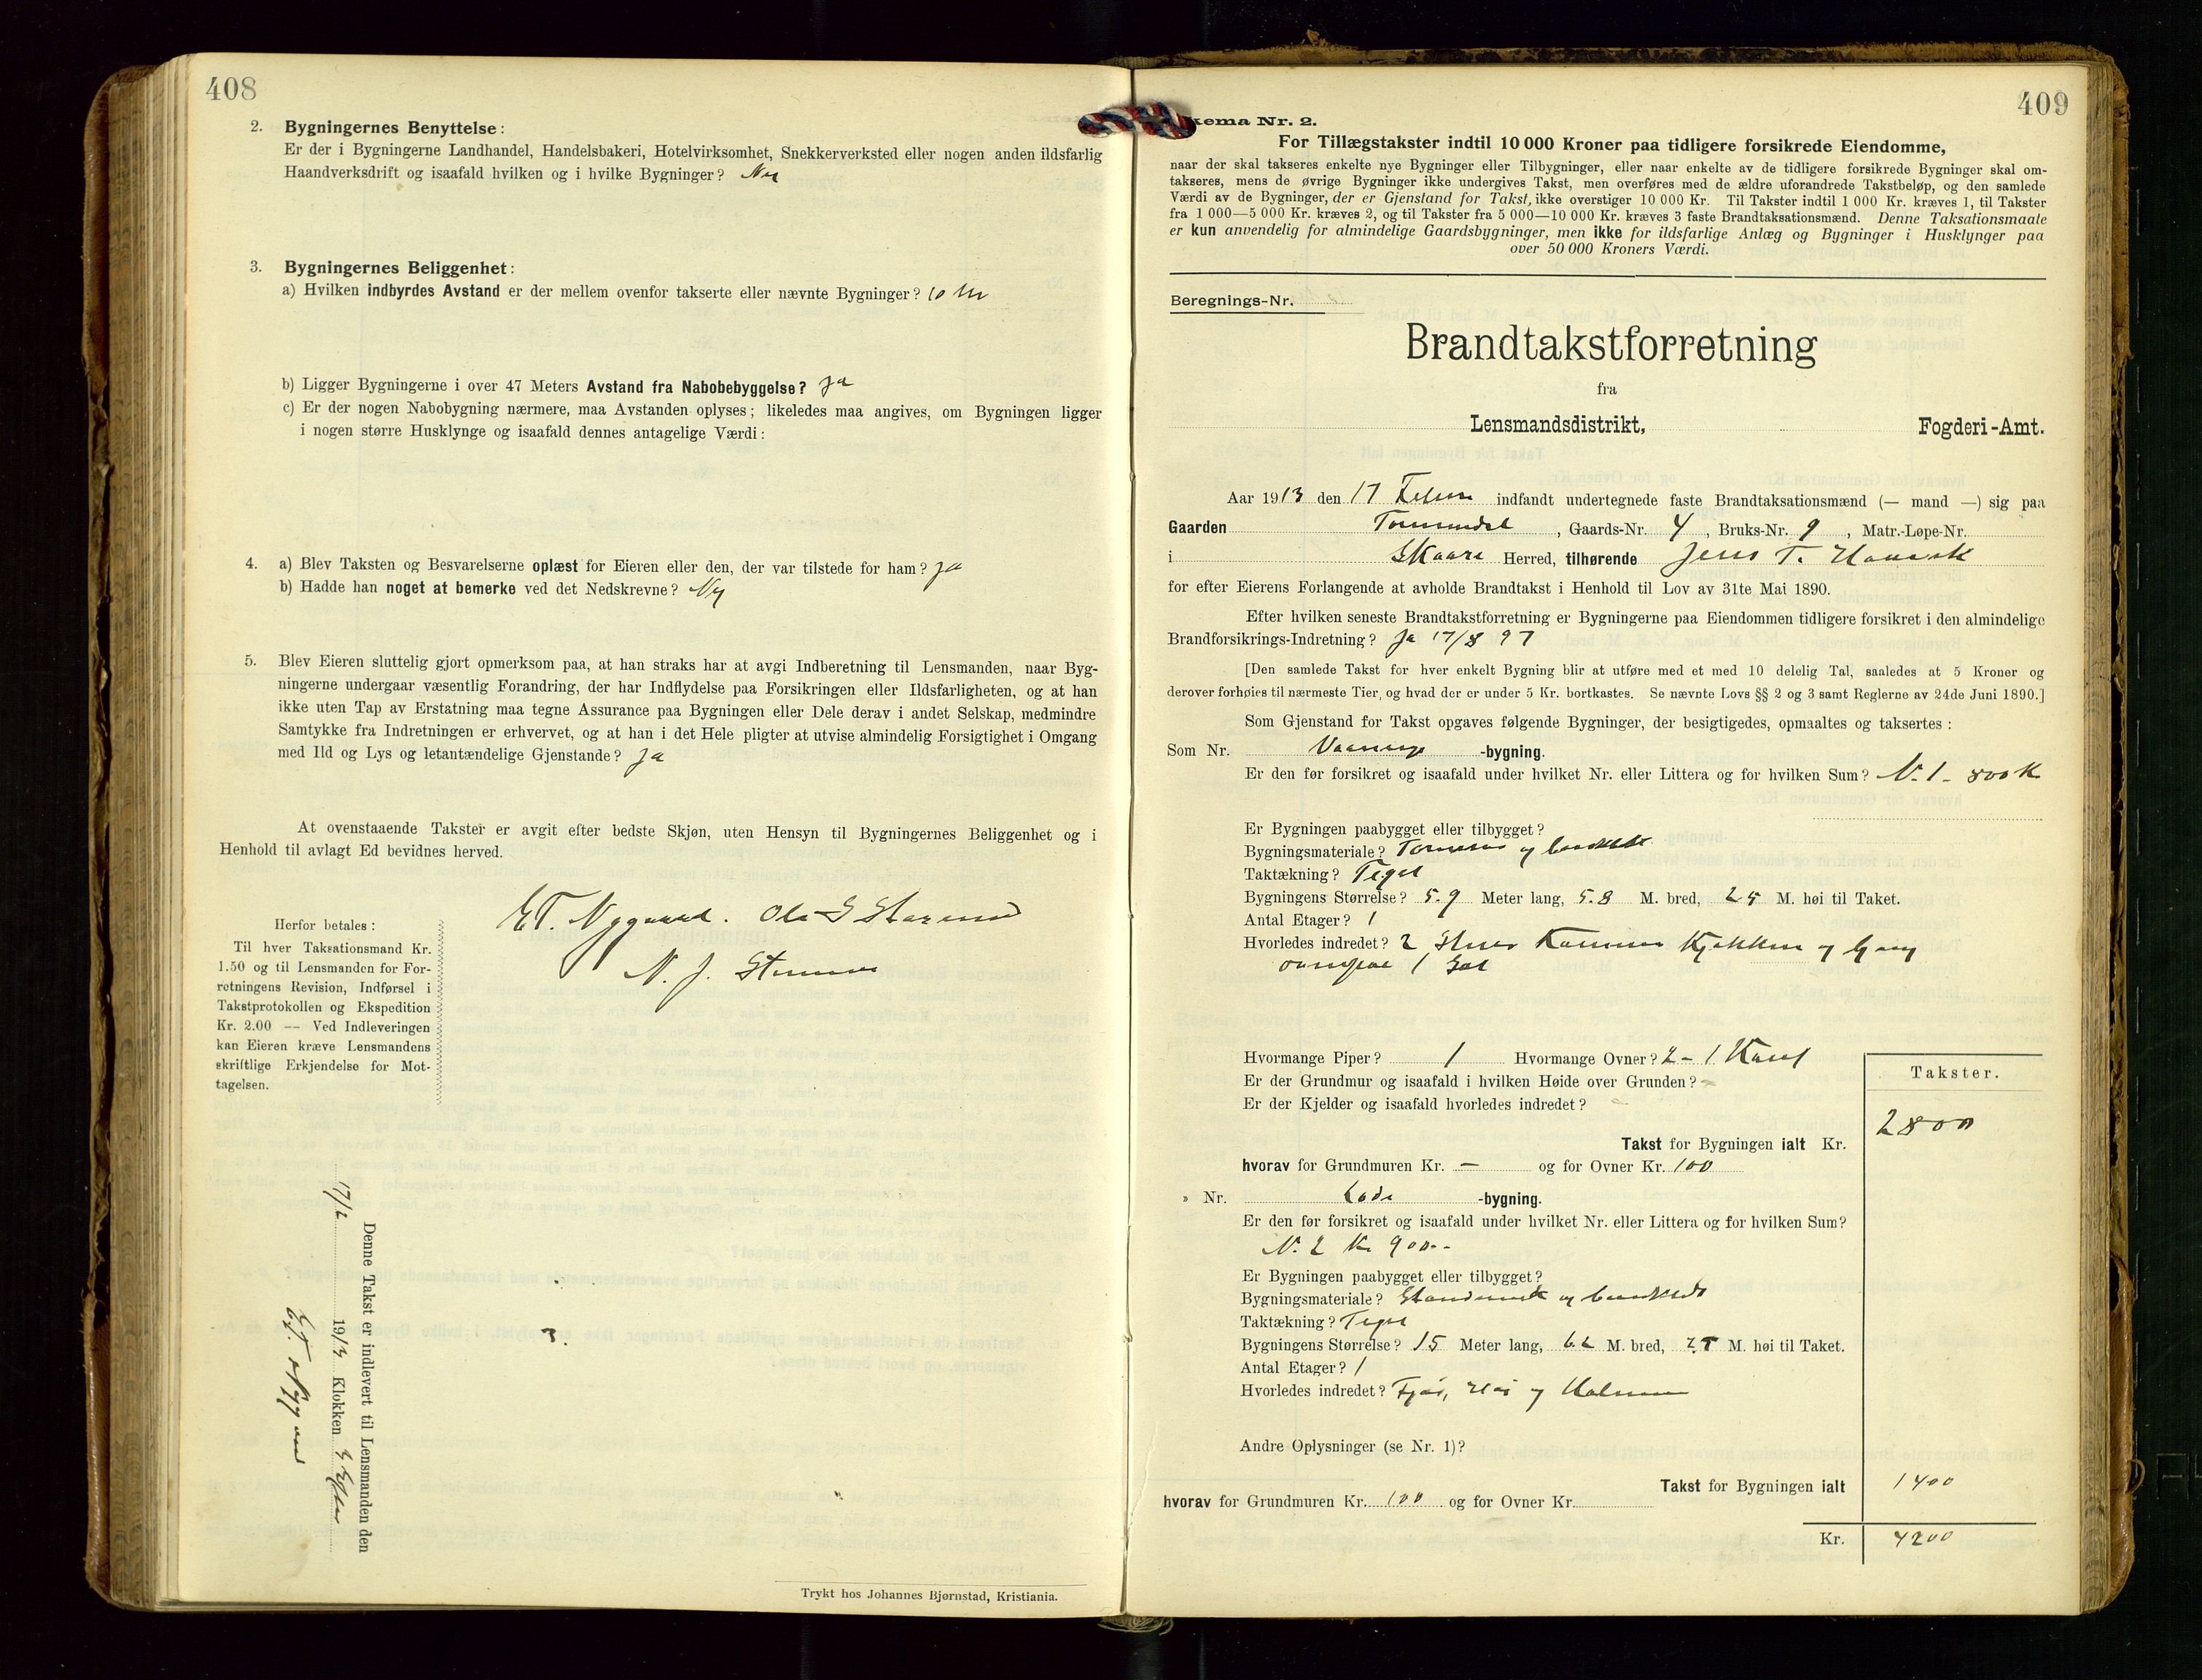 408
2. Bygningernes Benyttelse:
Er der i Bygningerne Landhandel, Handelsbakeri, Hotelvirksomhet, Snekkerverksted eller nogen anden ildsfarlig
Haandverksdrift og isaafald hvilken og i hvilke Bygninger?
3. Bygningernes Beliggenhet:
a) Hvilken indbyrdes Avstand er der mellem ovenfor takserte eller nævnte Bygninger? 10 M
b) Ligger Bygningerne i over 47 Meters Avstand fra Nabobebyggelse? Ja
c) Er der nogen Nabobygning nærmere, maa Avstanden oplyses; likeledes maa angives, om Bygningen ligger
i nogen større Husklynge og isaafald dennes antagelige Værdi:
4. a) Blev Taksten og Besvarelserne oplæst for Eieren eller den, der var tilstede for ham? Ja
b) Hadde han noget at bemerke ved det Nedskrevne?
5. Blev Eieren sluttelig gjort opmerksom paa, at han straks har at avgi Indberetning til Lensmanden, naar Byg-
ningerne undergaar væsentlig Forandring, der har Indflydelse paa Forsikringen eller Ildsfarligheten, og at han
ikke uten Tap av Erstatning maa tegne Assurance paa Bygningen eller Dele derav i andet Selskap, medmindre
Samtykke fra Indretningen er erhvervet, og at han i det Hele pligter at utvise almindelig Forsigtighet i Omgang
med Ild og Lys og letantændelige Gjenstande? Ja
At ovenstaaende Takster er avgit efter bedste Skjøn, uten Hensyn til Bygningernes Beliggenhet og i
Henhold til avlagt Ed bevidnes herved.
Herfor betales:
Til hver Taksationsmand Kr.
1.50 og til Lensmanden for For-
retningens Revision, Indførsel i
Takstprotokollen og Ekspedition
Kr. 2.00 — Ved Indleveringen
kan Eieren kræve Lensmandens
skriftlige Erkjendelse for Mot-
tagelsen.
E T. Nygaard. Ola S
N. J.
Denne Takst er indlevert til Lensmanden den
17/2 1913 Klokken
E. T. Nygaard
Trykt hos Johannes Bjørnstad, Kristiania.
409
kema Nr. 2.
For Tillægstakster indtil 10 000 Kroner paa tidligere forsikrede Eiendomme,
naar der skal takseres enkelte nye Bygninger eller Tilbygninger, eller naar enkelte av de tidligere forsikrede Bygninger skal om-
takseres, mens de øvrige Bygninger ikke undergives Takst, men overføres med de ældre uforandrede Takstbeløp, og den samlede
Værdi av de Bygninger, der er Gjenstand for Takst, ikke overstiger 10 000 Kr. Til Takster indtil 1 000 Kr. kræves 1, til Takster
fra 1 000—5 000 Kr. kræves 2, og til Takster fra 5 000—10 000 Kr. kræves 3 faste Brandtaksationsmænd. Denne Taksationsmaate
er kun anvendelig for almindelige Gaardsbygninger, men ikke for ildsfarlige Anlæg og Bygninger i Husklynger paa
over 50 000 Kroners Værdi.
Beregnings-Nr.
Brandtakstforretning
fra
Lensmandsdistrikt, Fogderi-Amt.
Aar 1913 den 17 indfandt undertegnede faste Brandtaksationsmænd (— mand —) sig paa
Gaarden , Gaards-Nr. 4 , Bruks-Nr. 9 , Matr.-Løpe-Nr.
i Skaare Herred, tilhørende Jens T.
for efter Eierens Forlangende at avholde Brandtakst i Henhold til Lov av 31te Mai 1890.
Efter hvilken seneste Brandtakstforretning er Bygningerne paa Eiendommen tidligere forsikret i den almindelige
Brandforsikrings-Indretning? Ja 17/8 97
[Den samlede Takst for hver enkelt Bygning blir at utføre med et med 10 delelig Tal, saaledes at 5 Kroner og
derover forhøies til nærmeste Tier, og hvad der er under 5 Kr. bortkastes. Se nævnte Lovs §§ 2 og 3 samt Reglerne av 24de Juni 1890.]
Som Gjenstand for Takst opgaves følgende Bygninger, der besigtigedes, opmaaltes og taksertes:
Som Nr. Vaanings -bygning.
Er den før forsikret og isaafald under hvilket Nr. eller Littera og for hvilken Sum? N. 1 - 800 K
Er Bygningen paabygget eller tilbygget?
Bygningsmateriale? Tømmer og bordklædt
Taktækning? Tegel
Bygningens Størrelse? 5.9 Meter lang, 5.8 M. bred, 25 M. høi til Taket.
Antal Etager? 1
Hvorledes indredet? 2 Stuer Kammer Kjøkken og Gang
ovenpaa 1 Sal
Hvormange Piper? 1 Hvormange Ovner? 2 - 1 Komf
Er der Grundmur og isaafald i hvilken Høide over Grunden? -
Er der Kjelder og isaafald hvorledes indredet? -
Takster.
Takst for Bygningen ialt Kr. 2800
hvorav for Grundmuren Kr. — og for Ovner Kr. 100
" Nr. Løde -bygning.
Er den før forsikret og isaafald under hvilket Nr. eller Littera og for hvilken Sum?
N. 2 Kr 900--
Er Bygningen paabygget eller tilbygget?
Bygningsmateriale? og bordklædt
Taktækning? Tegel
Bygningens Størrelse? 15 Meter lang, 6.2 M. bred, M. høi til Taket.
Antal Etager? 1
Hvorledes indredet? Fjøs, Høi og
Andre Oplysninger (se Nr. 1)?
Takst for Bygningen ialt 1400
hvorav for Grundmuren Kr. 100 og for Ovner Kr.
Kr. 4200